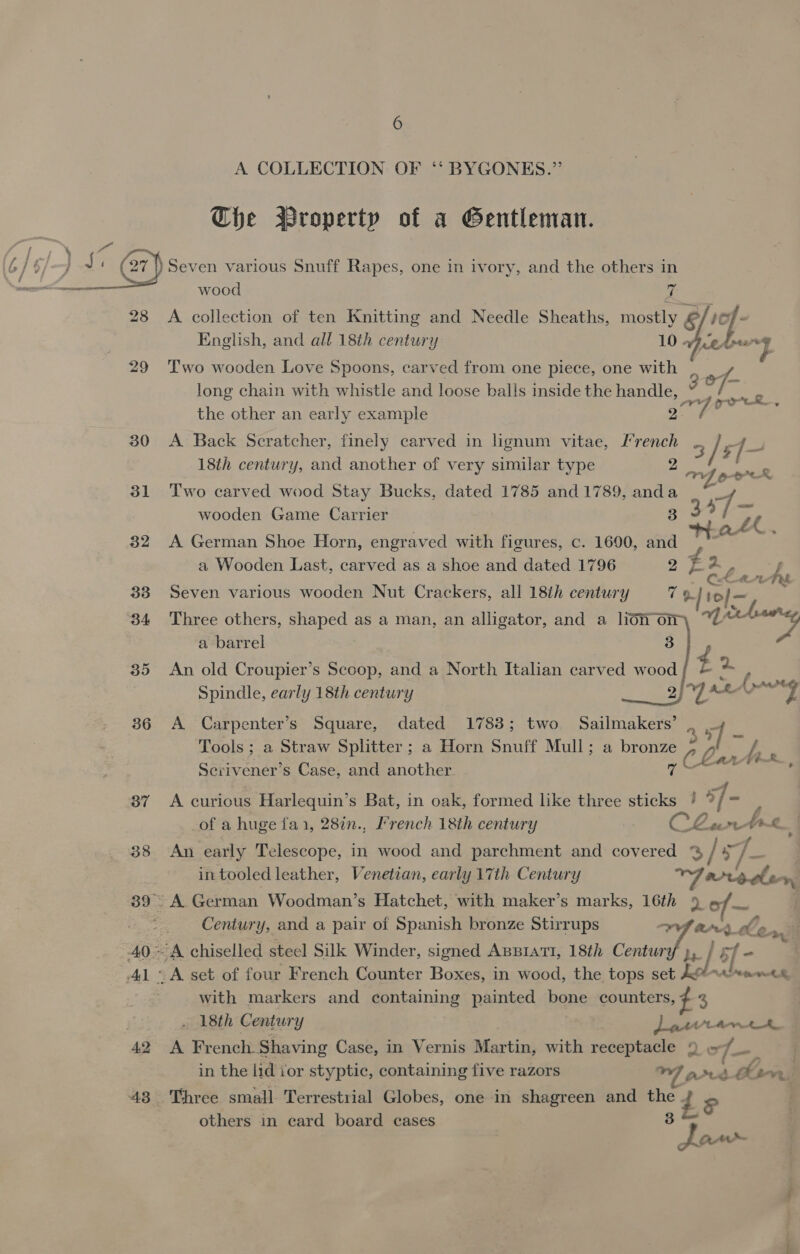 6
A COLLECTION OF “BYGONES.”
The Property of a Gentleman.
27 Seven various Snuff Rapes, one in ivory, and the others in
wood 7
28 A collection of ten Knitting and Needle Sheaths, mostly
English, and all 18th century 10
29 Two wooden Love Spoons, carved from one piece, one with
long chain with whistle and loose balls inside the handle,
the other an early example 2
30 A Back Scratcher, finely carved in lignum vitae, French 3/5/-
18th century, and another of very similar type 2
31 Two carved wood Stay Bucks, dated 1785 and 1789, and a
wooden Game Carrier 3
32 A German Shoe Horn, engraved with figures, c. 1600, and
a Wooden Last, carved as a shoe and dated 1796 2 £2
33 Seven various wooden Nut Crackers, all 18th century 7
34 Three others, shaped as a man, an alligator, and a lion on
a barrel 3
35 An old Croupier’s Scoop, and a North Italian carved wood £2
Spindle, early 18th century 2
36 A Carpenter’s Square, dated 1783; two Sailmakers’
Tools; a Straw Splitter; a Horn Snuff Mull; a bronze
Scrivener’s Case, and another 7
37 A curious Harlequin’s Bat, in oak, formed like three sticks
of a huge fan, 28in., French 18th century
38 An early Telescope, in wood and parchment and covered 3/5/-
in tooled leather, Venetian, early 17th Century
39 A German Woodman’s Hatchet, with maker’s marks, 16th
Century, and a pair of Spanish bronze Stirrups
40 A chiselled steel Silk Winder, signed ABBIATI, 18th Century
41 A set of four French Counter Boxes, in wood, the tops set
with markers and containing painted bone counters, £3
18th Century
42 A French Shaving Case, in Vernis Martin, with receptacle
in the lid for styptic, containing five razors
43 Three small Terrestrial Globes, one in shagreen and the
others in card board cases 3